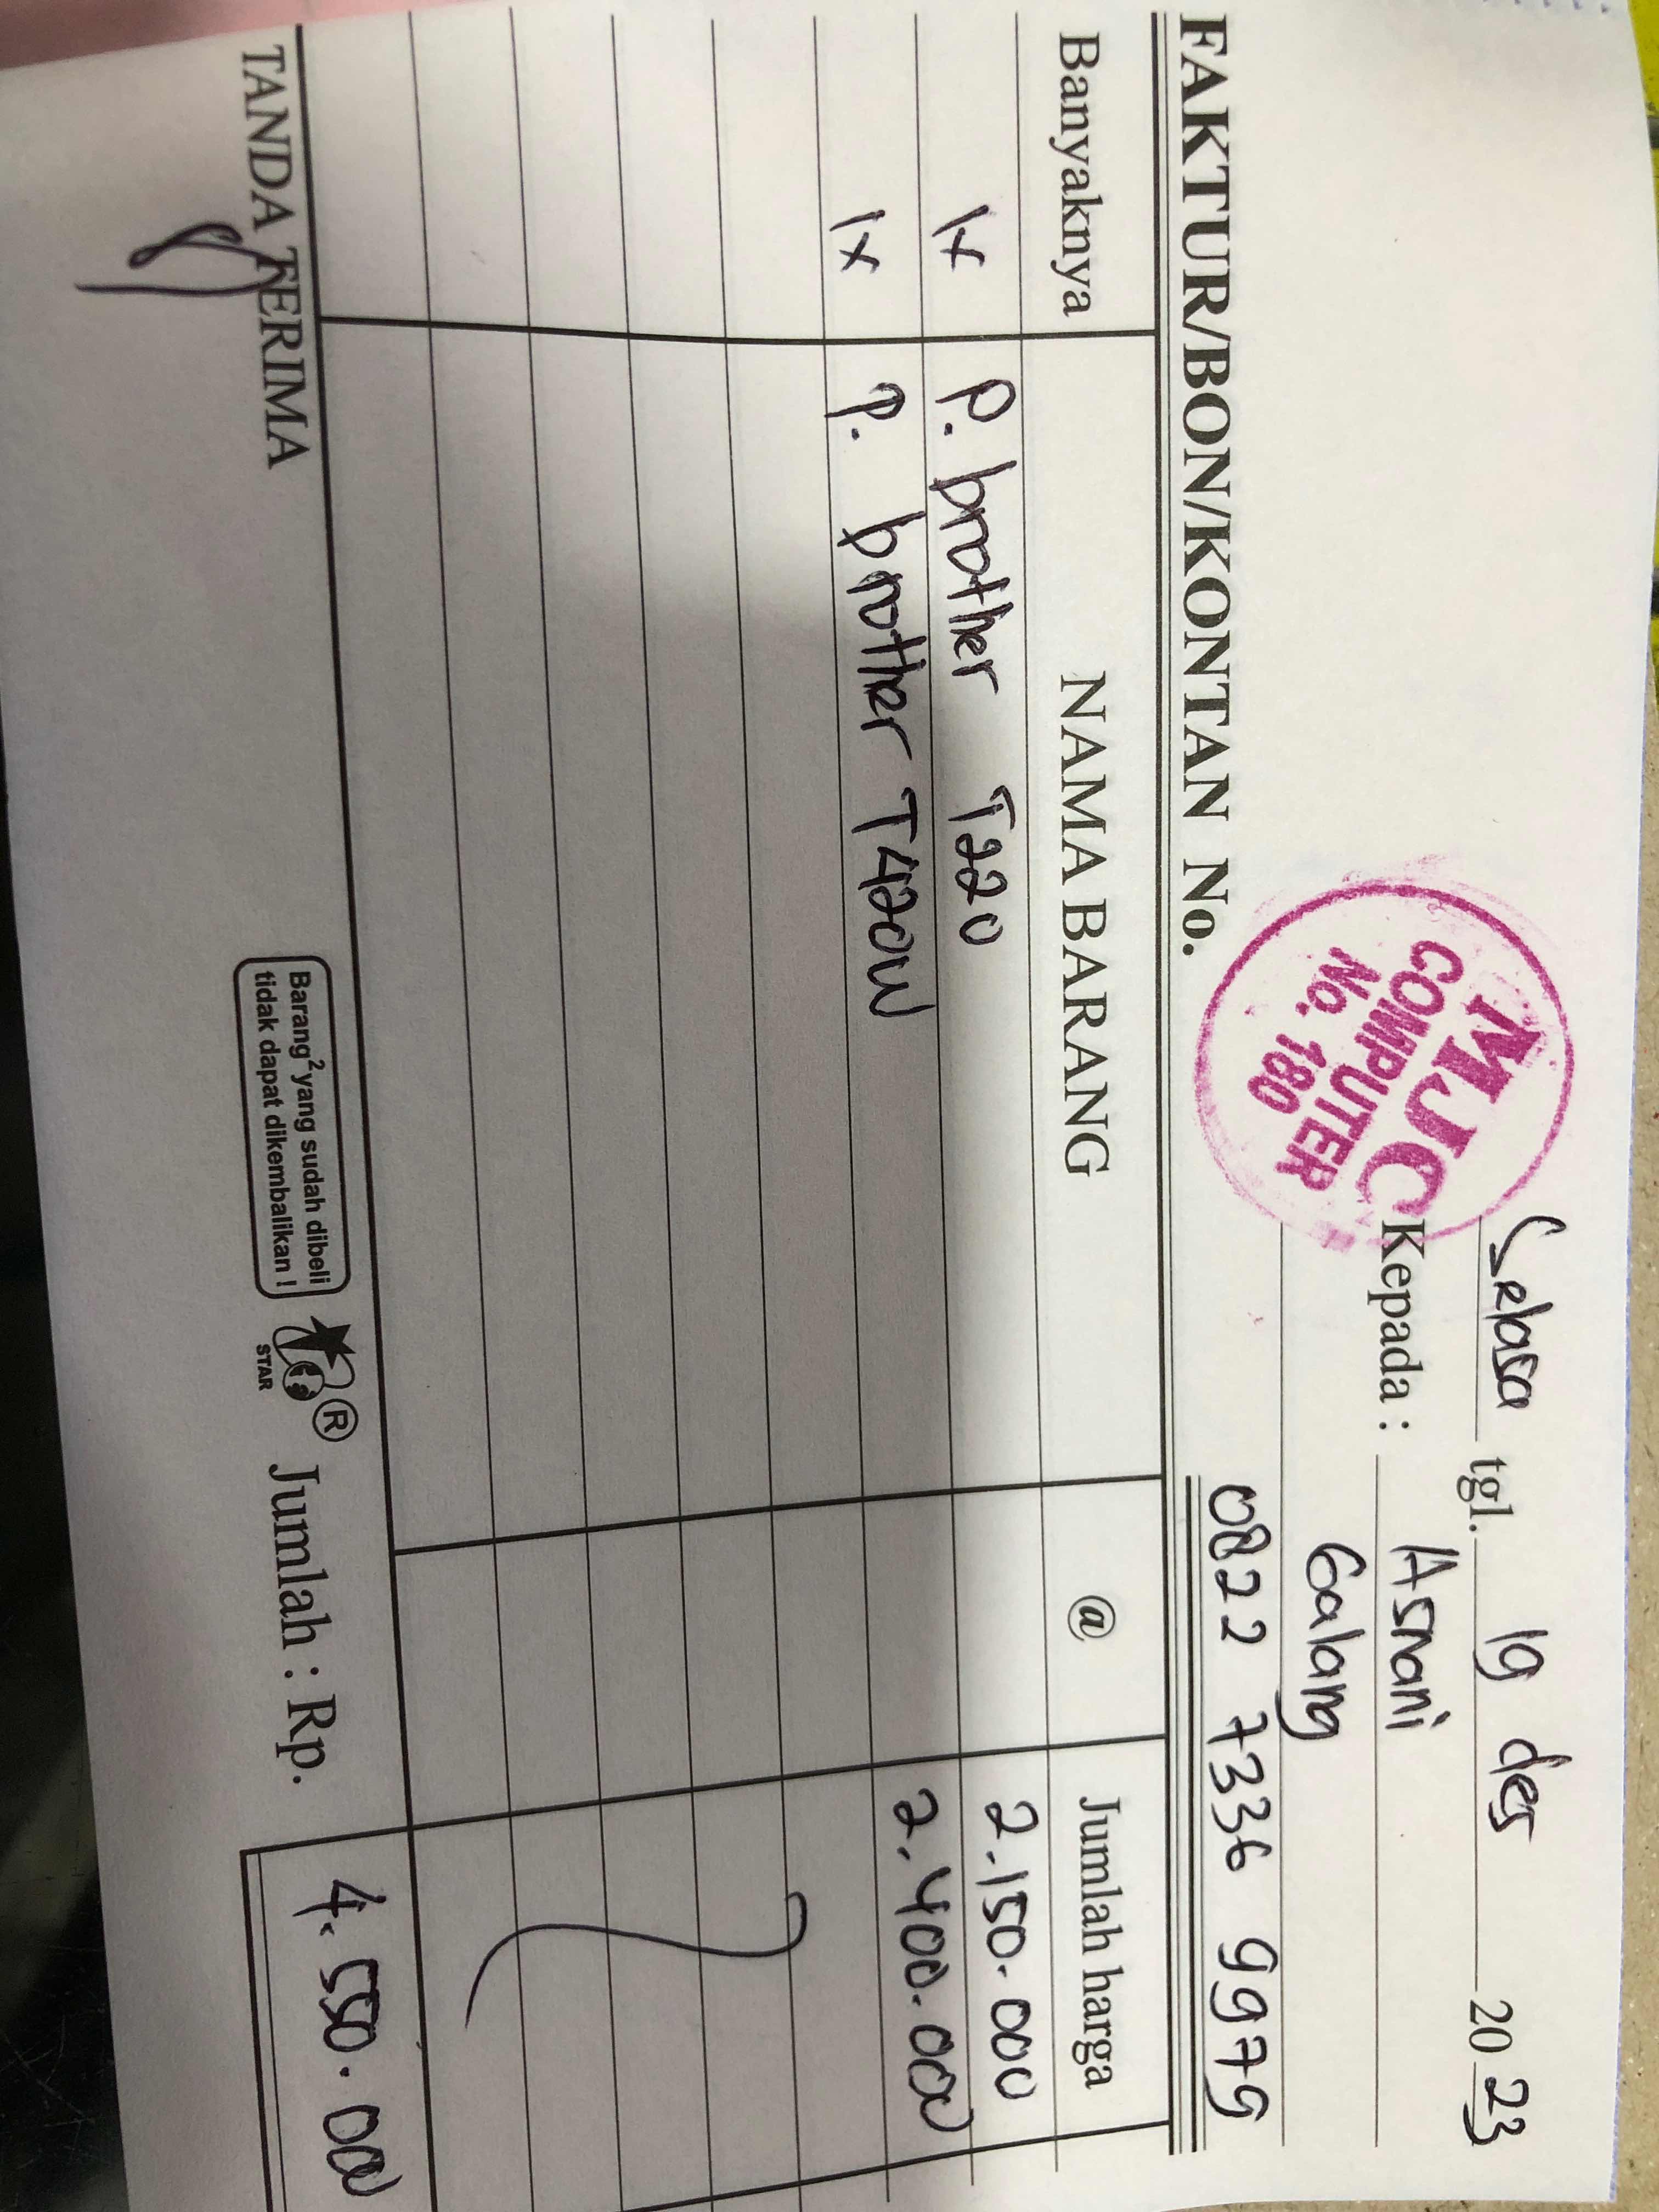 Selasa tgl. 19 des 2023
MJC
COMPUTER
No. 180
Kepada : Asnani
Galang
FAKTUR/BON/KONTAN No. 0822 7336 9979
Banyaknya NAMA BARANG @ Jumlah harga
1x P. brother T220 2.150.000
1x P. brother T420W 2.400.000
TANDA TERIMA
Barang² yang sudah dibeli
tidak dapat dikembalikan !
STAR
®
Jumlah : Rp. 4.550.000